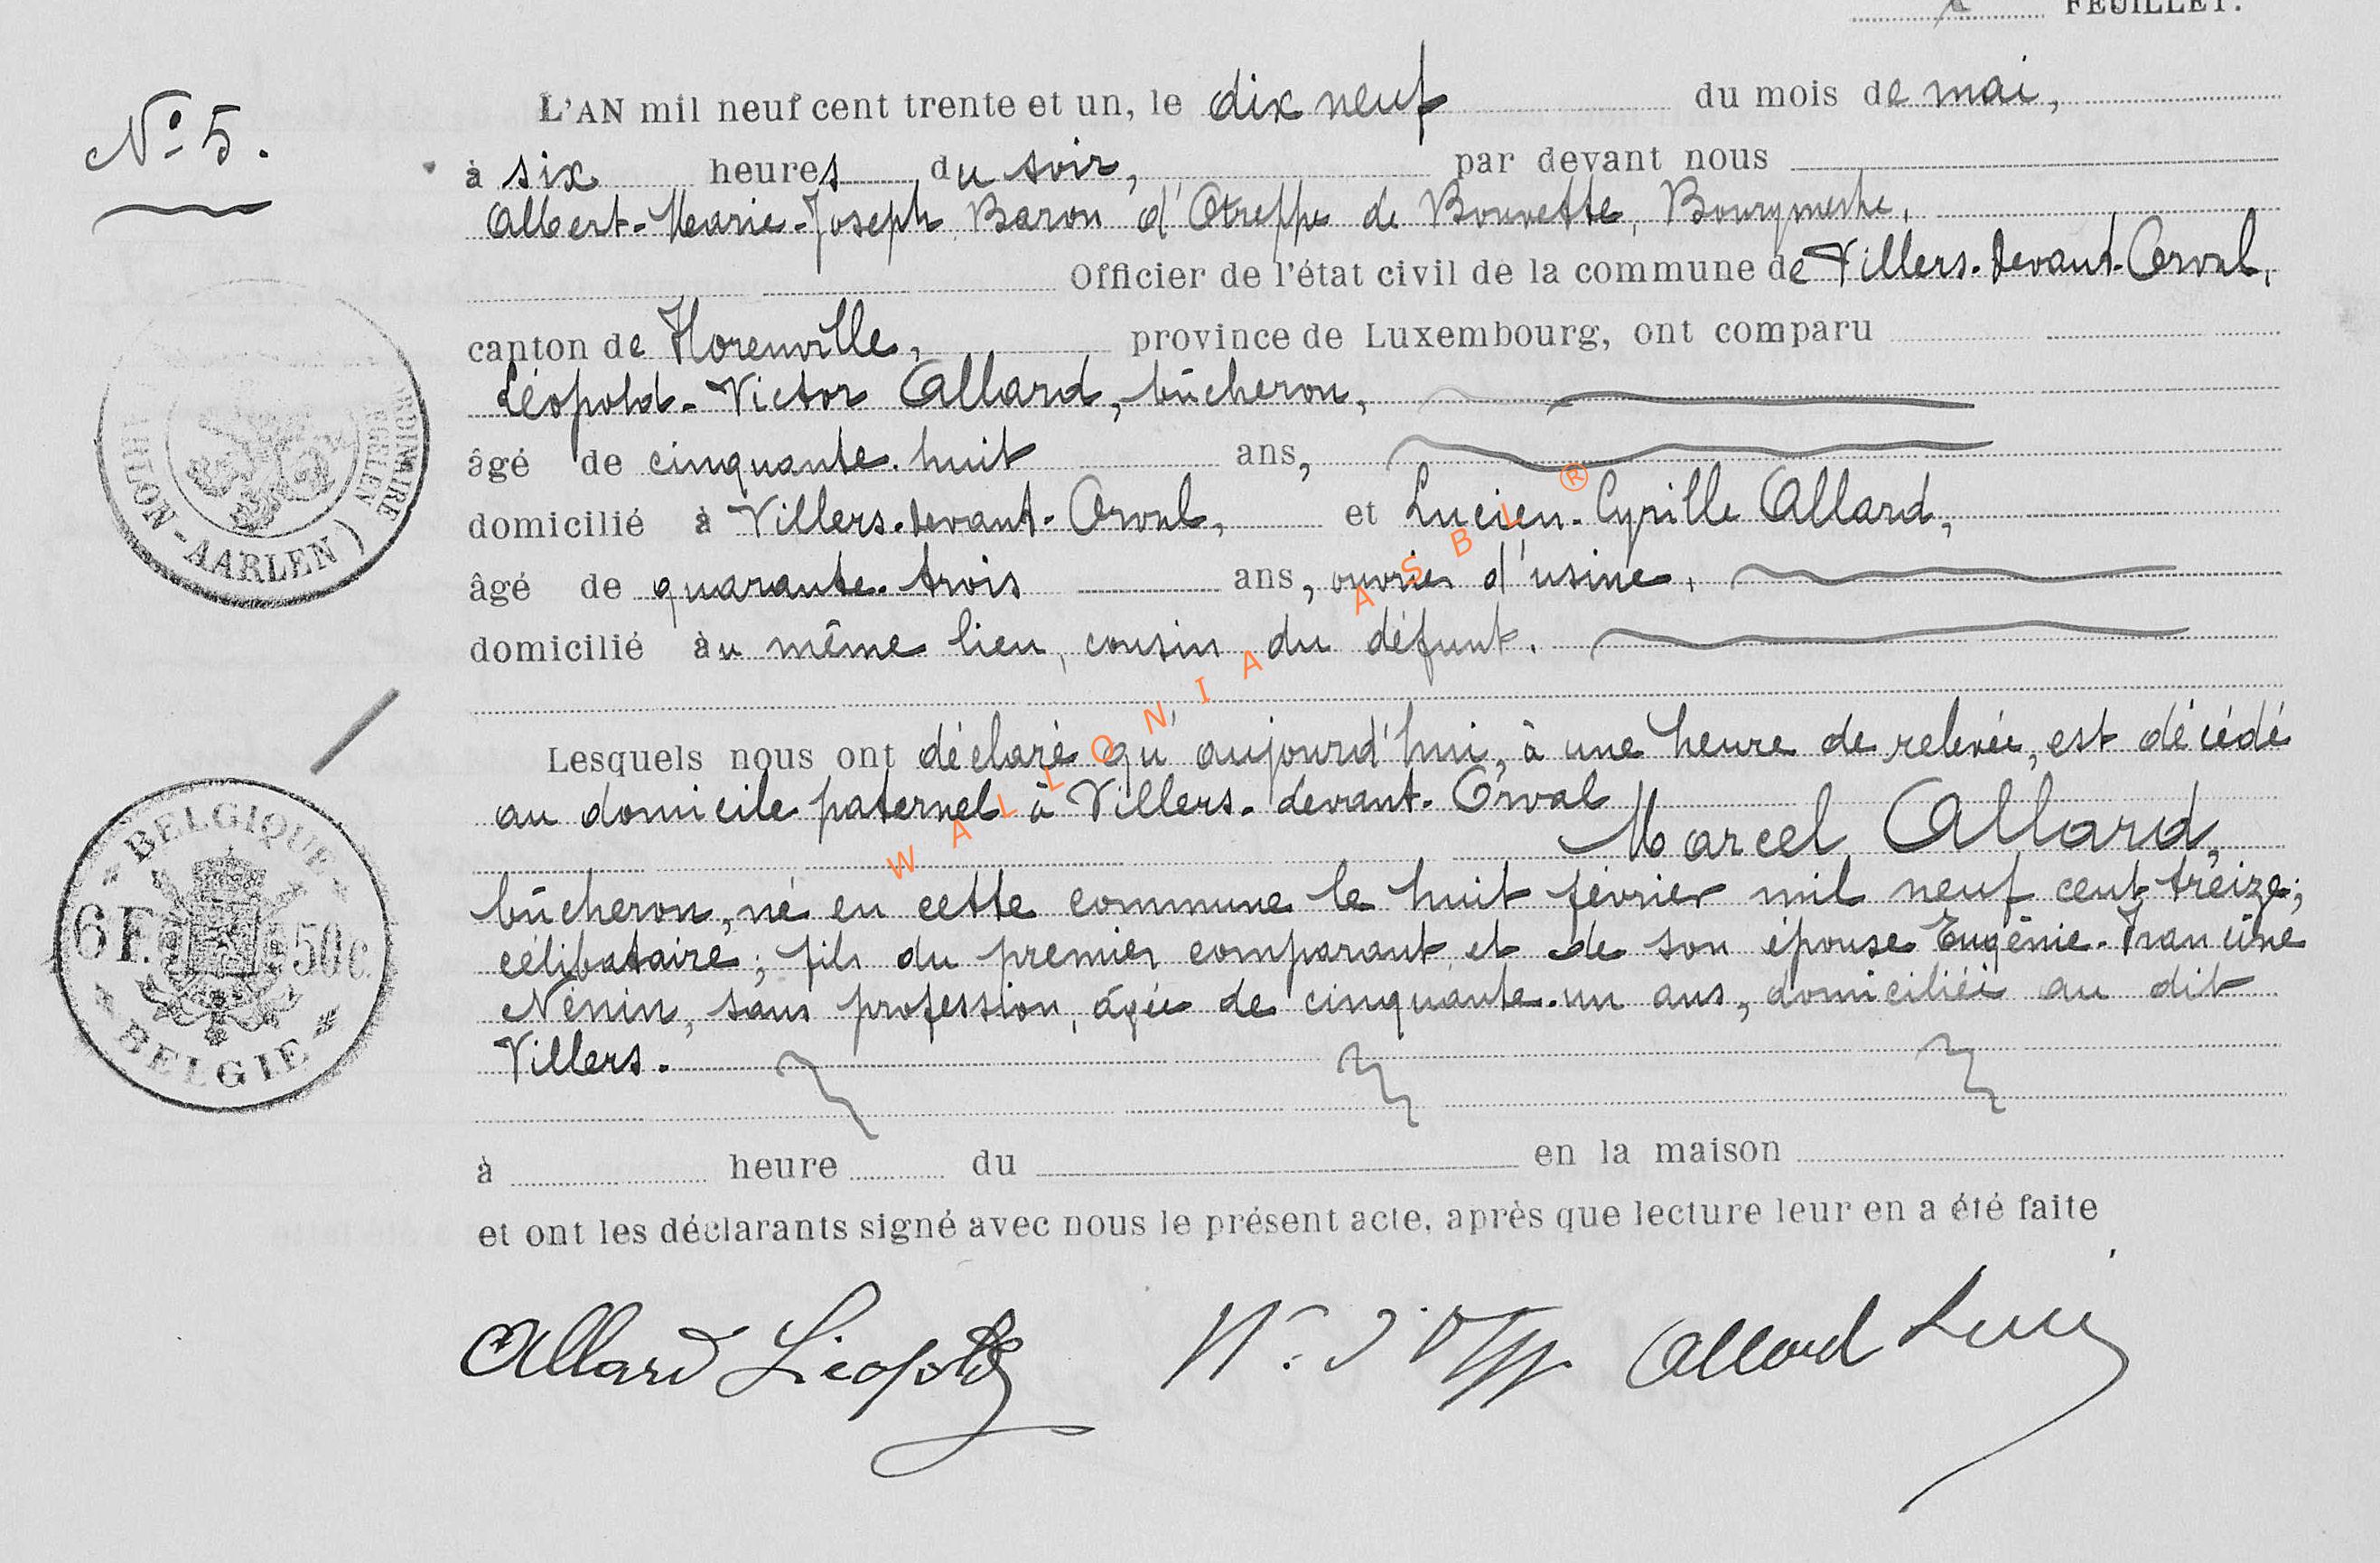 FEUILLET.
N° 5.
L'AN mil neuf cent trente et un, le dix neuf du mois de mai,
à six heures du soir, par devant nous
Albert-Marie-Joseph Baron d'Otreppe de Bouvette, Bourgmestre,
Officier de l'état civil de la commune de Villers-devant-Orval,
canton de Florenville, province de Luxembourg, ont comparu
Léopold-Victor Allard, bûcheron,
âgé de cinquante-huit ans,
domicilié à Villers-devant-Orval, et Lucien-Cyrille Allard,
âgé de quarante-trois ans, ouvrier d'usine,
domicilié àu même lieu, cousin du défunt.
Lesquels nous ont déclaré qu'aujourd'hui, à une heure de relevée, est décédé
au domicile paternel à Villers-devant-Orval
Marcel Allard,
bûcheron, né en cette commune le huit février mil neuf cent treize;
célibataire; fils du premier comparant et de son épouse Eugénie-Francine
Nénin, sans profession, âgée de cinquante-un ans, domiciliée au dit
Villers.
à heure du en la maison
et ont les déclarants signé avec nous le présent acte, après que lecture leur en a été faite
Allard Léopold Allard Lucien
ARLON-AARLEN)
BELGIQUE
6 F. 50 C.
BELGIE
WALLONIA ASBL ®